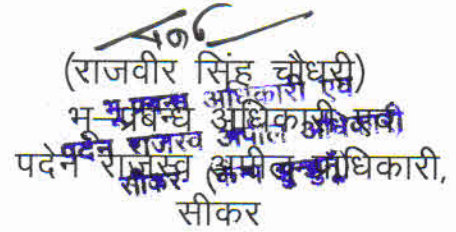 (राजवीर सिंह चौधरी)
भू-प्रबन्ध अधिकारी एवं
पदेन राजस्व अपील अधिकारी,
सीकर
भू-प्रबन्ध अधिकारी एवं
पदेन राजस्व अपील अधिकारी
सीकर